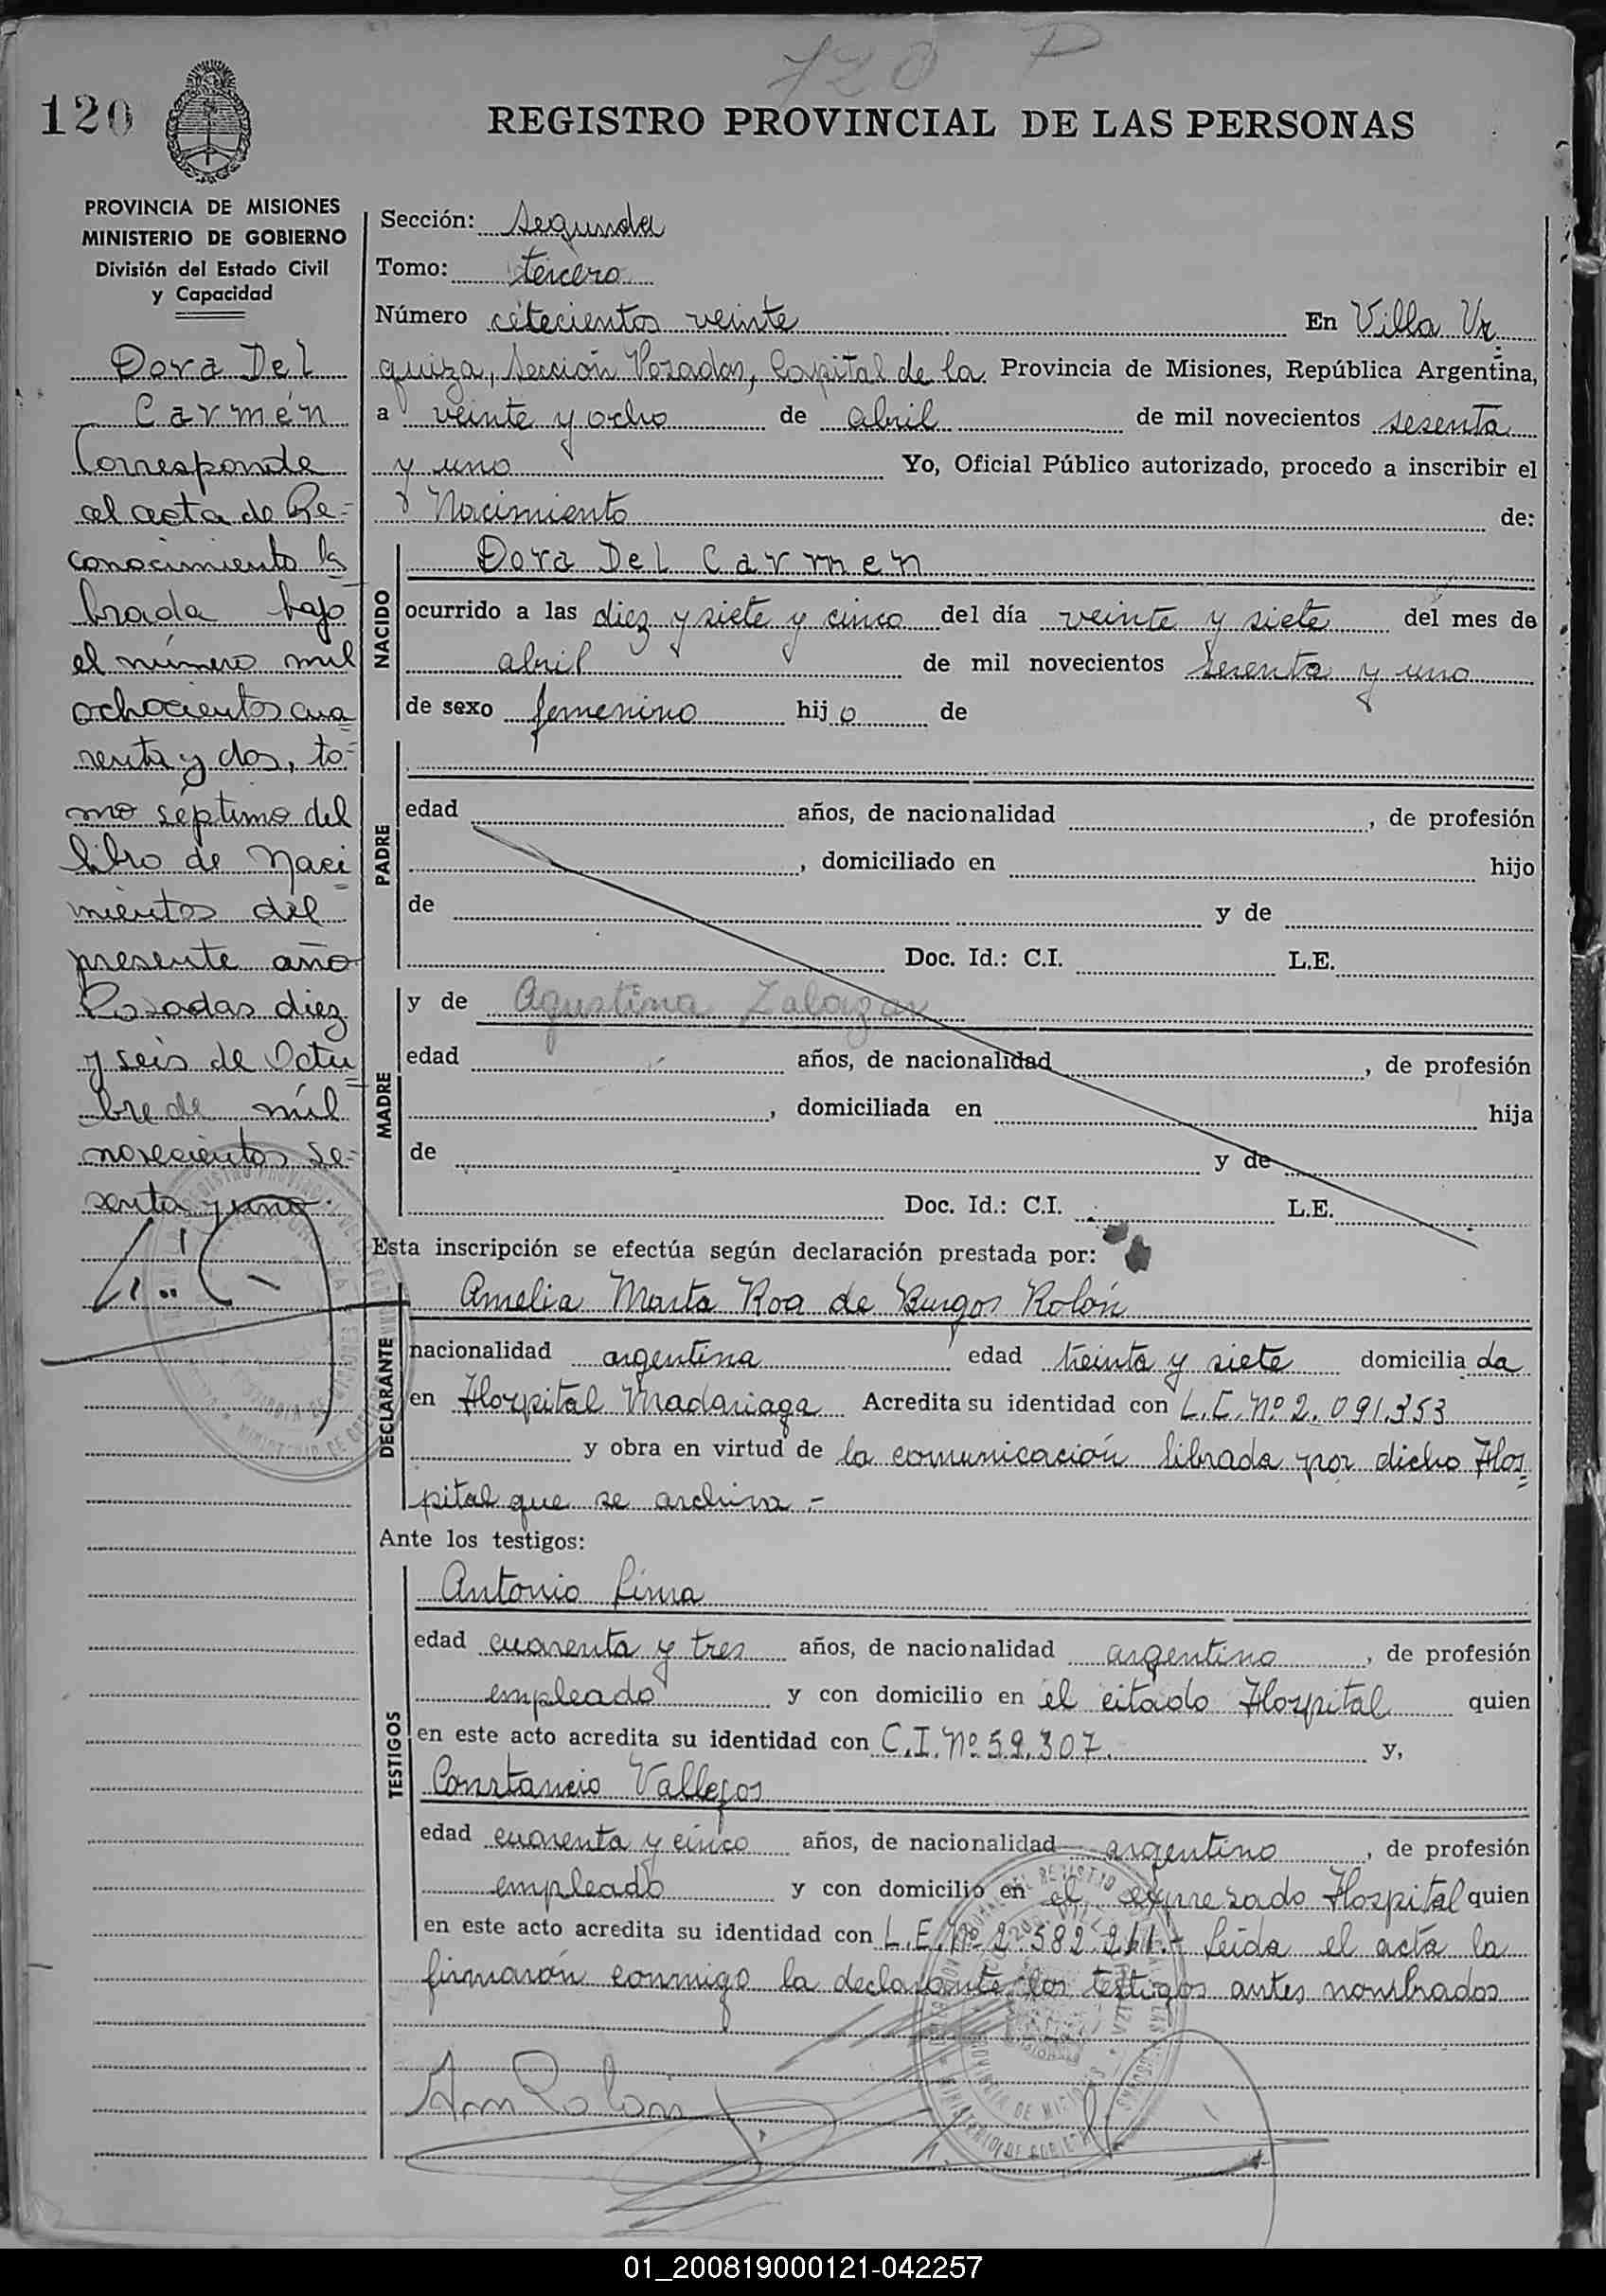 720 P
120
REGISTRO PROVINCIAL DE LAS PERSONAS
PROVINCIA DE MISIONES
MINISTERIO DE GOBIERNO
División del Estado Civil
y Capacidad
Dora Del
Carmen
Corresponde
al acta de Re=
conocimiento la
brada bajo
el número mil
ochocientos cua
renta y dos, to=
mo séptimo del
libro de Naci
mientos del
presente año
Posadas diez
y seis de Octu
bre de mil
novecientos se=
senta y uno.
Sección: Segunda
Tomo: tercero
Número cetecientos veinte En Villa Ur
quiza, Sección Posadas, Capital de la Provincia de Misiones, República Argentina,
a veinte y ocho de abril de mil novecientos sesenta
y uno Yo, Oficial Público autorizado, procedo a inscribir el
Nacimiento de:
NACIDO
Dora Del Carmen
ocurrido a las diez y siete y cinco del día veinte y siete del mes de
abril de mil novecientos sesenta y uno
de sexo femenino hijo de
PADRE
edad años, de nacionalidad , de profesión
, domiciliado en hijo
de y de
Doc. Id.: C.I. L.E.
MADRE
y de Agustina Zalazar
edad años, de nacionalidad , de profesión
, domiciliada en hija
de y de
Doc. Id.: C.I. L.E.
Esta inscripción se efectúa según declaración prestada por:
DECLARANTE
Amelia Marta Roa de Burgos Rolón
nacionalidad argentina edad treinta y siete domiciliada
en Hospital Madariaga Acredita su identidad con L.C. Nº 2.091.353
y obra en virtud de la comunicación librada por dicho Hos
pital que se archiva.-
Ante los testigos:
TESTIGOS
Antonio Lima
edad cuarenta y tres años, de nacionalidad argentino , de profesión
empleado y con domicilio en el citado Hospital quien
en este acto acredita su identidad con C.I. Nº 59.307. y,
Constancio Vallejos
edad cuarenta y cinco años, de nacionalidad argentino , de profesión
empleado y con domicilio en el expresado Hospital quien
en este acto acredita su identidad con L.E. Nº 2.582.261.- Leída el acta la
firmaron conmigo la declarante los testigos antes nombrados
Am Rolon
01_200819000121-042257